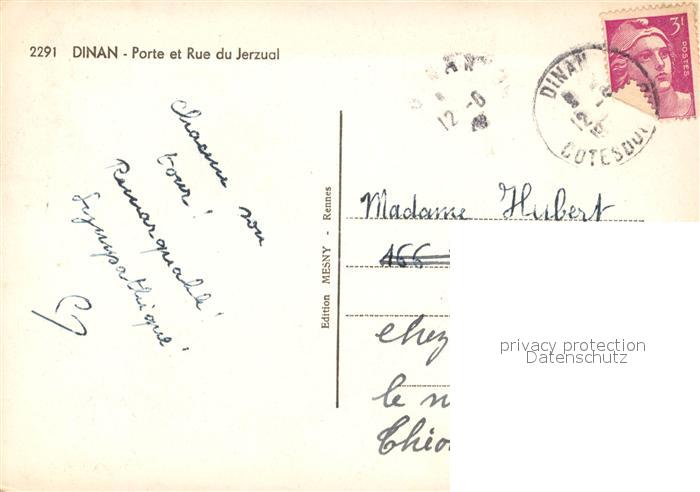 2291 DINAN - Porte et Rue du Jerzual
3f
POSTES
DINAN
12-6
DINAN
12-6
COTES DU
Chacun son
tour!
Remarquable!
Sympathique!
Edition MESNY - Rennes
Madame Hubert
466
chez
le
privacy protection
Datenschutz